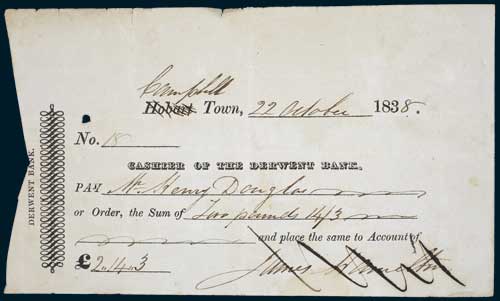 Campbell
Hobart Town, 22 October 1838.
No. 18
CASHIER OF THE DERWENT BANK.
PAY Mr Henry Douglas
or Order, the Sum of Two pounds 14/3
and place the same to Account of
£ 2.14.3
James Hamilton
DERWENT BANK.